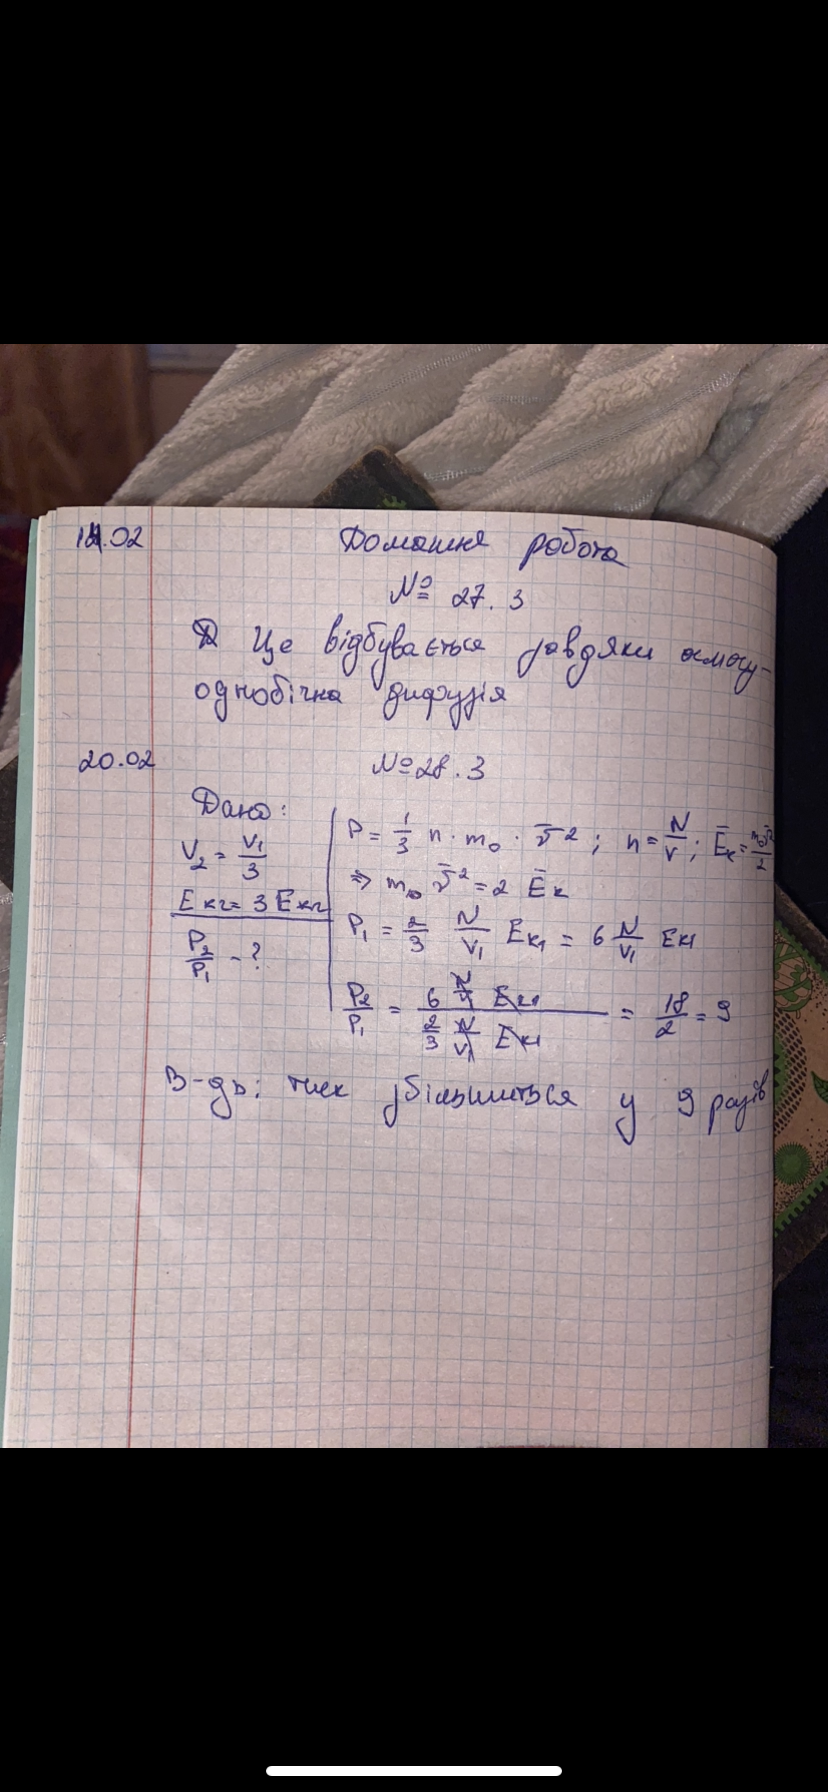 14.02 Домашня робота
№ 27.3
Це відбувається завдяки осмосу-
однобічна дифузія
20.02 № 28.3
Дано:
V₂ = V₁/3
Eк₂ = 3 Eк₁
P₂/P₁ - ?
P = 1/3 n · m₀ · v̄²; n = N/V; Ēк = m₀v̄²/2
⇒ m₀ v̄² = 2 Ēк
P₁ = 2/3 N/V₁ Eк₁ = 6 N/V₁ Eк1
P₂/P₁ = (6 N/V₁ Eк1)/(2/3 N/V₁ Eк1) = 18/2 = 9
В-дь: тиск збільшиться у 9 разів